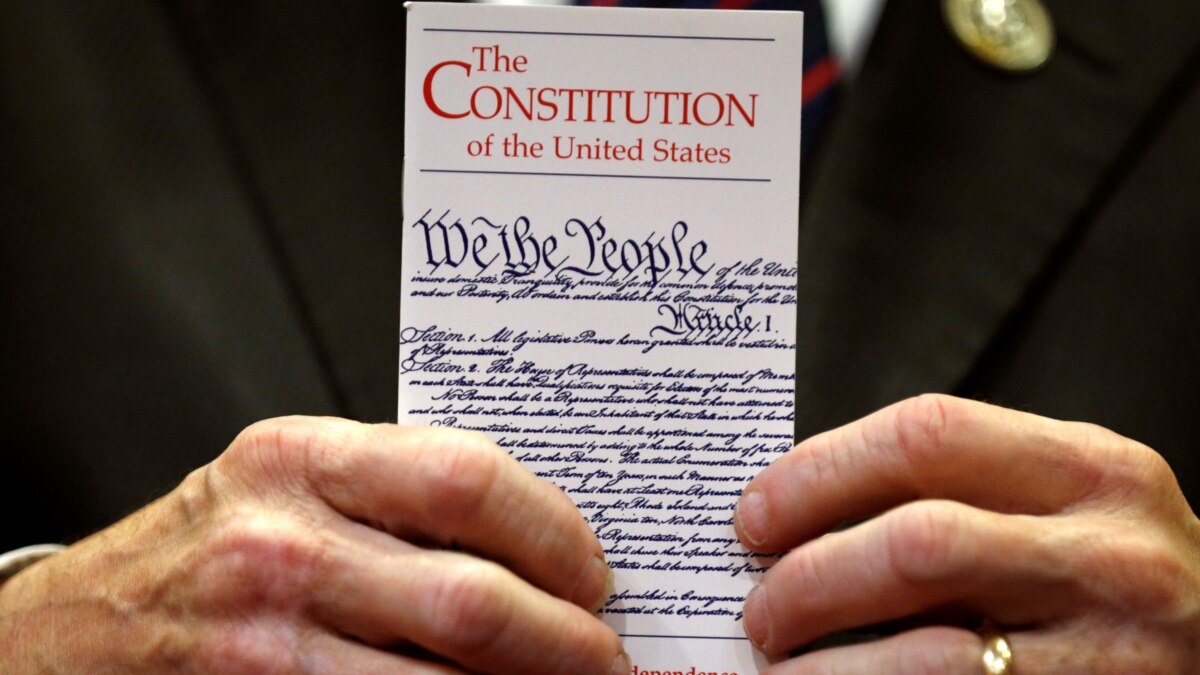 The
CONSTITUTION
of the United States
We the People of the Unit
insure domestic Tranquility, provide for the common defence, promo
and our Posterity, do ordain and establish this Constitution for the Un
Article. I.
Section. 1. All legislative Powers herein granted shall be vested in a
of Representatives.
Section. 2. The House of Representatives shall be composed of Mem
in each State shall have Qualifications requisite for Electors of the most numero
No Person shall be a Representative who shall not have attained to
and who shall not, when elected, be an Inhabitant of that State in which he sha
Representatives and direct Taxes shall be apportioned among the several
hall be determined by adding to the whole Number of free Pe
of all other Persons. The actual Enumeration sha
ent Term of ten Years, in such Manner as
ll shall have at Least one Representa
eight, Rhode Island and
Virginia ten, North Carol
Representation from any
shall chuse their Speaker and
States shall be composed of two
assembled in Consequence
vacated at the Expiration
dependence